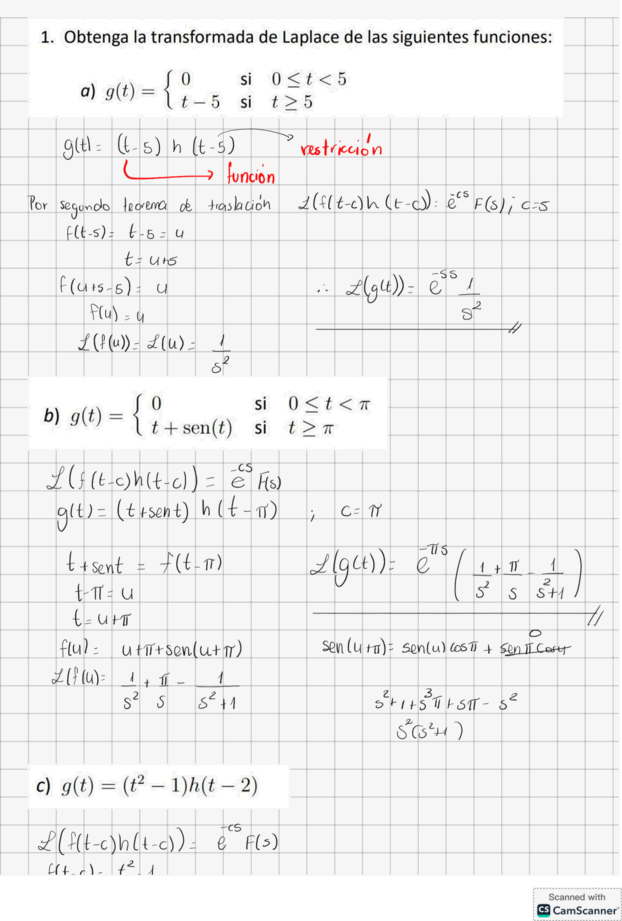 1. Obtenga la transformada de Laplace de las siguientes funciones:
a) g(t) = { 0 si 0 ≤ t < 5
t − 5 si t ≥ 5
g(t) = (t-5) h (t-5) restricción
función
Por segundo teorema de traslación ℒ(f(t-c)h(t-c)) = e^-cs F(s) ; c=5
f(t-5) = t-5 = u
t = u+5
f(u+5-5) = u
f(u) = u
∴ ℒ(g(t)) = e^-5s 1/s²
ℒ(f(u)) = ℒ(u) = 1/s²
b) g(t) = { 0 si 0 ≤ t < π
t + sen(t) si t ≥ π
ℒ(f(t-c)h(t-c)) = e^-cs F(s)
g(t) = (t+sent) h(t-π) ; c = π
t+sent = f(t-π)
t-π = u
t = u+π
ℒ(g(t)) = e^-πs (1/s² + π/s - 1/s²+1)
f(u) = u+π+sen(u+π)
sen(u+π) = sen(u) cosπ + senπ cosu 0
ℒ(f(u) = 1/s² + π/s - 1/s²+1
s²+1+s³π+sπ-s²
s²(s²+1)
c) g(t) = (t² − 1)h(t − 2)
ℒ(f(t-c)h(t-c)) = e^-cs F(s)
f(t-c) = t²-1
Scanned with
CS CamScanner